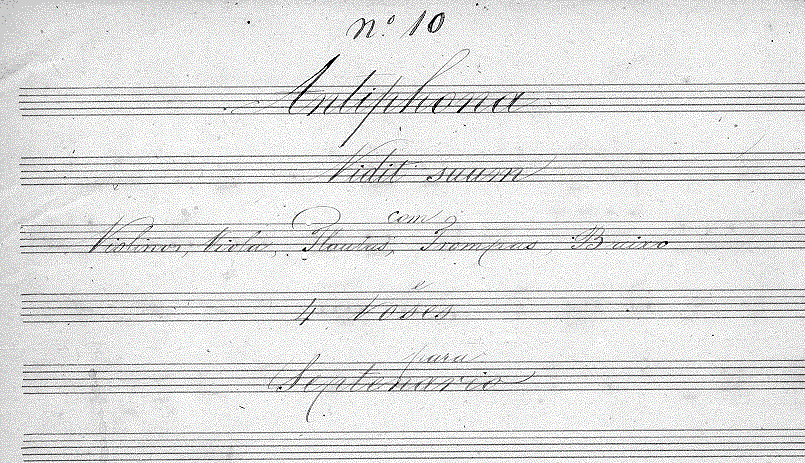 n.º 10
Antiphona
Vidit suum
com
Violinos, Viola, Flautas, Trompas, Baixo
e
4 Voses
para
Septenario